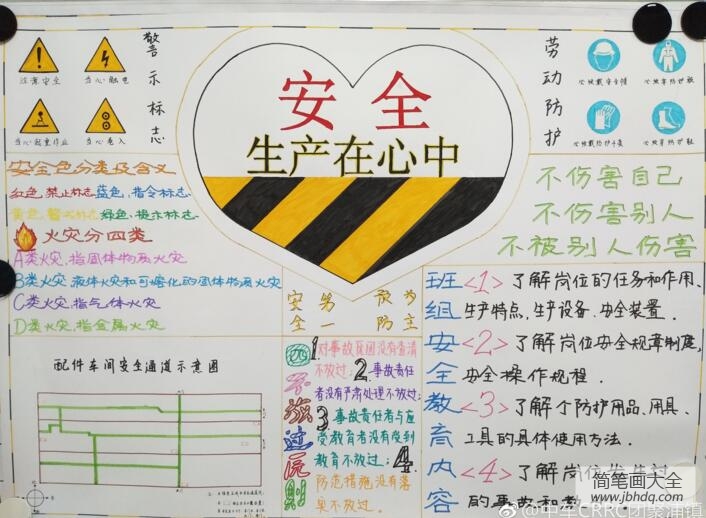 警示标志
注意安全
当心触电
当心起重作业
当心卷入
安全
生产在心中
劳动防护
必须戴安全帽
必须穿防护服
必须戴防护手套
必须穿防护鞋
安全色分类及含义
红色,禁止标志蓝色,指令标志
黄色,警示标志绿色,提示标志
火灾分四类
A类火灾,指固体物质火灾
B类火灾 液体火灾和可熔化的固体物质火灾
C类火灾,指气体火灾
D类火灾,指金属火灾
不伤害自己
不伤害别人
不被别人伤害
安全第一
预防为主
配件车间安全通道示意图
四不放过原则
1.对事故原因没有查清
不放过;2.事故责任
者没有严肃处理不放过;
3.事故责任者与应
受教育者没有受到
教育不放过;4
防范措施没有落
实不放过.
班组安全教育内容
<1>了解岗位的任务和作用、
生产特点,生产设备、安全装置.
<2>了解岗位安全规章制度,
安全操作规程.
<3>了解个防护用品、用具、
工具的具体使用方法.
<4>了解岗位
的事故和教
简笔画大全
www.jbhdq.com
@中车CRRC